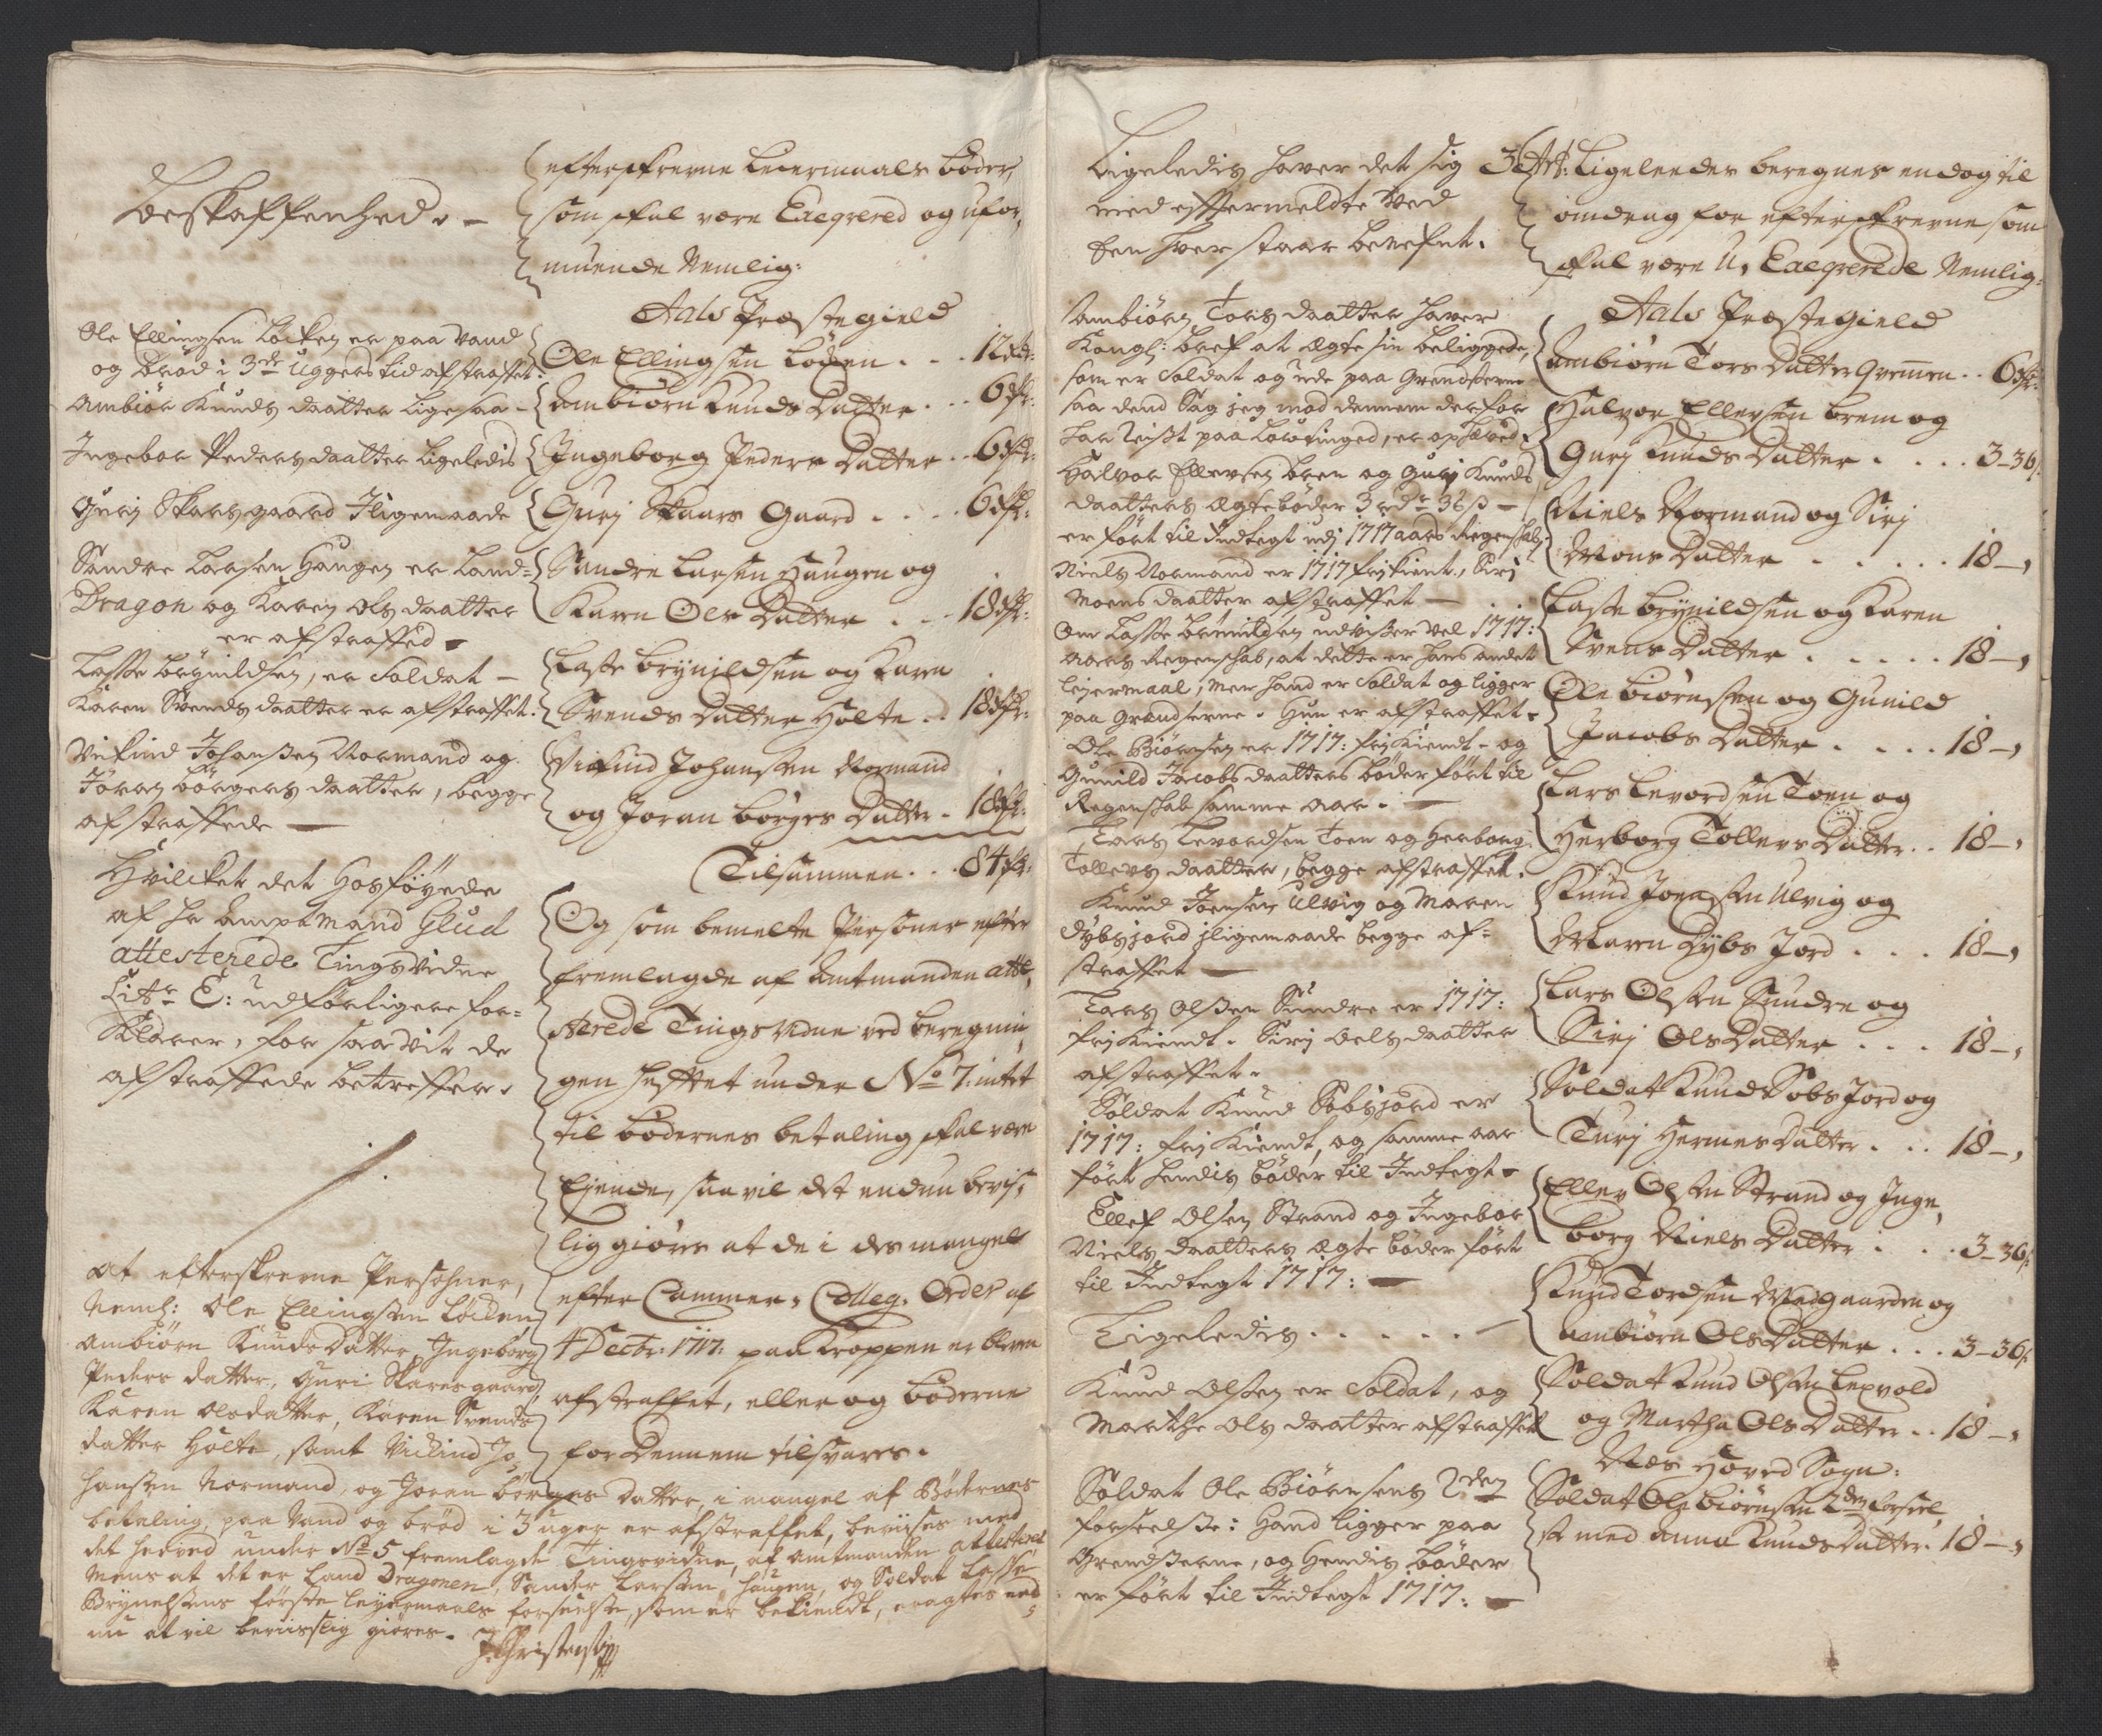 Beskaffenhed. -
Ole Ellingsen Löcken er paa Vand
og Bröd i 3de Uggers tid afstraffet.
Ambiör Knuds daatter ligesaa -
Ingebor Peders daatter ligeledis
Gurj Skarsgaard Iligemaade
Sandre Larsen Haugen er Land-
Dragon og Karen Ols daatter
er afstraffed.
Lasse Brynildsen, er Soldat -
Karen Svends daatter er afstraffet.
Vikind Johansen Normand og
Jören Börgers daatter, begge
afstraffede -
Hvilcket det hosföyede
af Hr Amptmand Glud
attesterede Tingsvidne
Litr E: udförligere for-
klarer, for saavit de
afstraffede betreffer.
At efterskrevne Persohner,
Neml: Ole Ellingsen Löcken
Ambiörn Knuds Datter, Ingeborg
Peders datter, Guri Skaresgaard,
Karen Olsdatter, Karen Svends
datter Holte, samt Vickind Jo-
hansen Normand, og Joran Börges Datter, i mangel af Bödernes
betaling paa Vand og bröd i 3 uger er afstraffet, beviises med
det hosved under No 5 fremlagde Tingsvidne, af Amtmanden attesteret
Mens at det er Land Dragonen, Sander Larsen Haugen, og Soldat Lasse
Brynelsens förste leyermaals forseelse, som er bekiendt, eragtes end-
nu at vil beviislig giöres. J: Christensen
efterskrevne Leiermaals Böder,
som skal være Exeqvered og ufor,
muende Nemlig:
Aals Præstegield
Ole Ellingsen Löken . . . 12 dr:
Ambiörn Knuds Datter . . . 6 dr:
Ingeborg Peders Datter . . 6 dr:
Gurj Skaars Gaard . . . . 6 dr:
Sandre Larsen Haugen og
Karen Ols Datter . . . 18 dr:
Lasse Brynildsen og Karen
Svends Datter Holte . . 18 dr:
Vickind Johansen Normand
og Joran Börges Datter . 18 dr:
Tilsammen . . . 84 dr:
Og som bemelte Personer efter
fremlagde af Amtmanden atte,
sterede Tingsvidne ved beregnin,
gen hefftet under No 7: intet
til bödernes betaling skal være
Ejende, saa vil det endnu bevis,
lig giöres at de i des mangel
efter Cammer, Colleg. Order af
4 Decbr: 1717: paa Kroppen er bleven
afstraffet, eller og böderne
for Dennem tilsvares.
Ligeledis haver det sig
med efftermeldte ved
den hver staar benefnt.
Ambiörn Tors daatter haver
Kongl: bref at ægte sin beliggede,
som er Soldat og rede paa Grendserne
saa dend Sag jeg mod dennem derfor
har reist paa Lavtinged, er ophæved.
Halvor Ellevsen Bren og Gurj Knuds
daatters ægtebøder 3 rdr 36 s -
er fört til Indtegt udj 1717 aars Regenskab
Niels Normand er 1717 frikient, Sirj
Moens daatter afstraffet -
Om Lasse Brönildsen udviser vel 1717:
aars Regenskab, at dette er hans andet
lejermaal, Men hand er Soldat og ligger
paa Grendserne. Hun er afstraffet.
Ole Biörnsen er 1717: frj kiendt - og
Gunild Jacobsdaatters böder fört til
Regenskab samme aar. -
Lars Levordsen Toen og Herborg
Tollevs daatter, begge afstraffet.
Knud Joensen Ulvig og Maren
Dybsjord iligemaade begge af-
straffet -
Lars Olsen Sundre er 1717:
frj kiendt. Sirj Oels daatter
afstraffet.
Soldat Knud Sobsjord er
1717: frj kiendt, og samme aar
fört hendis böder til Indtegt.
Ellef Olsen Strand og Ingebor
Niels daatters ægte böder fört
til Indtegt 1717: -
Ligeledis . . . . . . -
Knud Olsen er Soldat, og
Marthe Ols daatter afstraffet
Soldat Ole Biörnsens 2den
forseelse: Hand ligger paa
Grendserne, og hendis böder
er fört til Indtegt 1717: -
3 Art: Ligeleedes beregnes endog til
omdrag for efterskrevne som
skal være U, Exeqverede Nemlig:
Aals Præstegield
Ambiörn Tors Datter Grennen . . 6 dr:
Halvor Ellevsen Brem og
Gurj Knuds Datter . . . . 3 - 36 s
Niels Normand og Sirj
Mons Datter . . . . . 18 -,
Lasse Brynildsen og Karen
Svens Datter . . . . . 18 -,
Ole Biörnsen og Gunild
Jacobs Datter . . . . 18 -,
Lars Levordsen Toen og
Herborg Tollevs Datter . . 18 -,
Knud Joensen Ulvig og
Maren Dybs Jord . . . 18 -,
Lars Olsen Sundre og
Sirj Ols Datter . . . 18 -,
Soldat Knud Sobs Jord og
Turj Hermes Datter . . . 18 -,
Ellev Olsen Strand og Inge,
borg Niels Datter . . . . 3 - 36 s
Knud Tordsen Medgaarden og
Ambiörn Ols Datter . . . 3 - 36 s
Soldat Knud Olsen Lexvold
og Martha Ols Datter . . 18 -,
Næs Hoved Sogn:
Soldat Ole Biörnsen 2den forseel,
se med Anna Knuds Datter . 18 -,